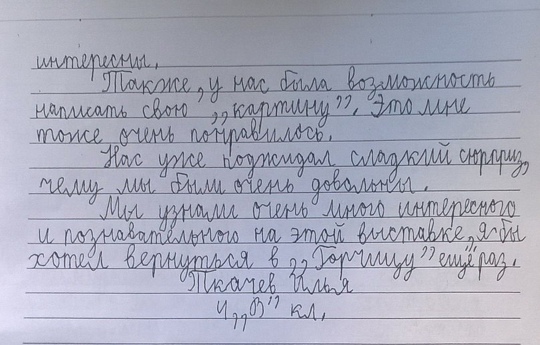 интересны.
Также, у нас была возможность
написать свою „картину”. Это мне
тоже очень понравилось.
Нас уже поджидал сладкий сюрприз,
чему мы были очень довольны.
Мы узнали очень много интересного
и познавательного на этой выставке, я бы
хотел вернуться в „Горчицу” ещё раз.
Ткачев Илья
4„В” кл.